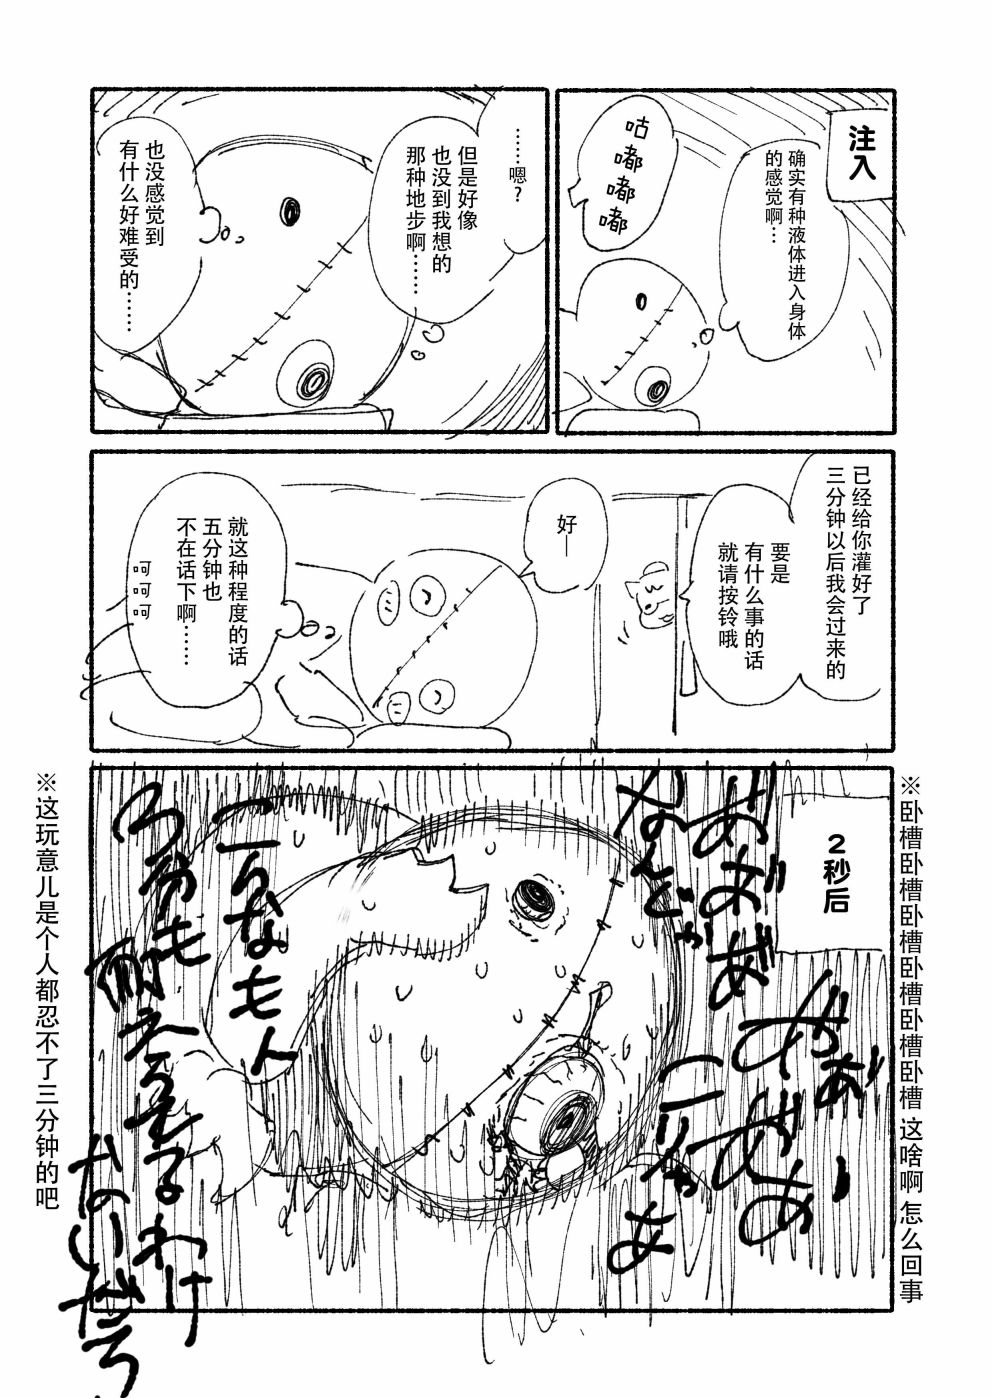 注入
确实有种液体进入身体
的感觉啊…
咕
嘟
嘟
嘟
……嗯?
但是好像
也没到我想的
那种地步啊……
也没感觉到
有什么好难受的……
已经给你灌好了
三分钟以后我会过来的
要是
有什么事的话
就请按铃哦
好—
就这种程度的话
五分钟也
不在话下啊……
呵呵呵
※卧槽卧槽卧槽卧槽卧槽卧槽 这啥啊 怎么回事
2秒后
なんだ
こんなもん
3分も
※这玩意儿是个人都忍不了三分钟的吧